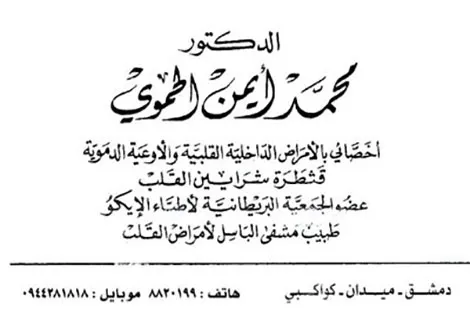 الدكتور
محمد أيمن الحموي
أخصائي بالأمراض الداخلية القلبية والأوعية الدموية
قثطرة شرايين القلب
عضو الجمعية البريطانية لأطباء الإيكو
طبيب مشفى الباسل لأمراض القلب
دمشق - ميدان - كواكبي هاتف : ٨٨٢٠١٩٩ موبايل : ٠٩٤٤٢٨١٨١٨